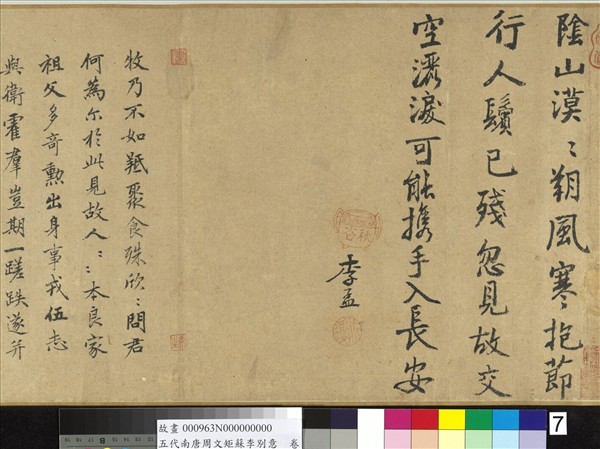 陰山漠〻朔風寒抱節
行人鬢已殘忽見故交
空灑淚可能携手入長安
李孟
牧乃不如羝聚食殊欣〻問君
何為尓於此見故人〻〻本良家
祖父多奇勲出身事戎伍志
與衛霍羣豈期一蹉跌遂并
7
故畫 000963N000000000
五代南唐周文矩蘇李別意 卷